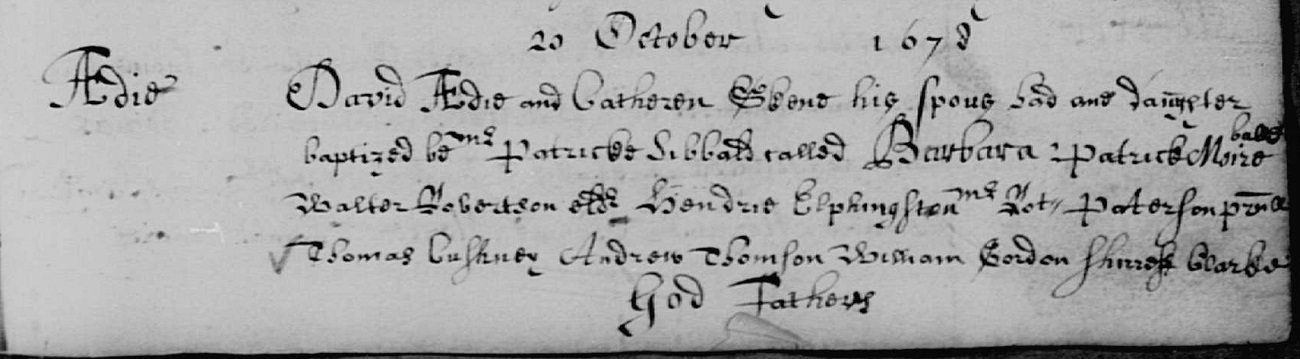 20 October 1678
Ædie David Ædie and Catheren Skene his spous had ane daughter
baptized be mr Patricke Sibbald called Barbara Patrick Moire
Walter Robertson eldr Hendrie Elphingstoun mr Rot Paterson
Thomas Cushney Andrew Thomson William Gordon shirreff Clarke
God Fathers